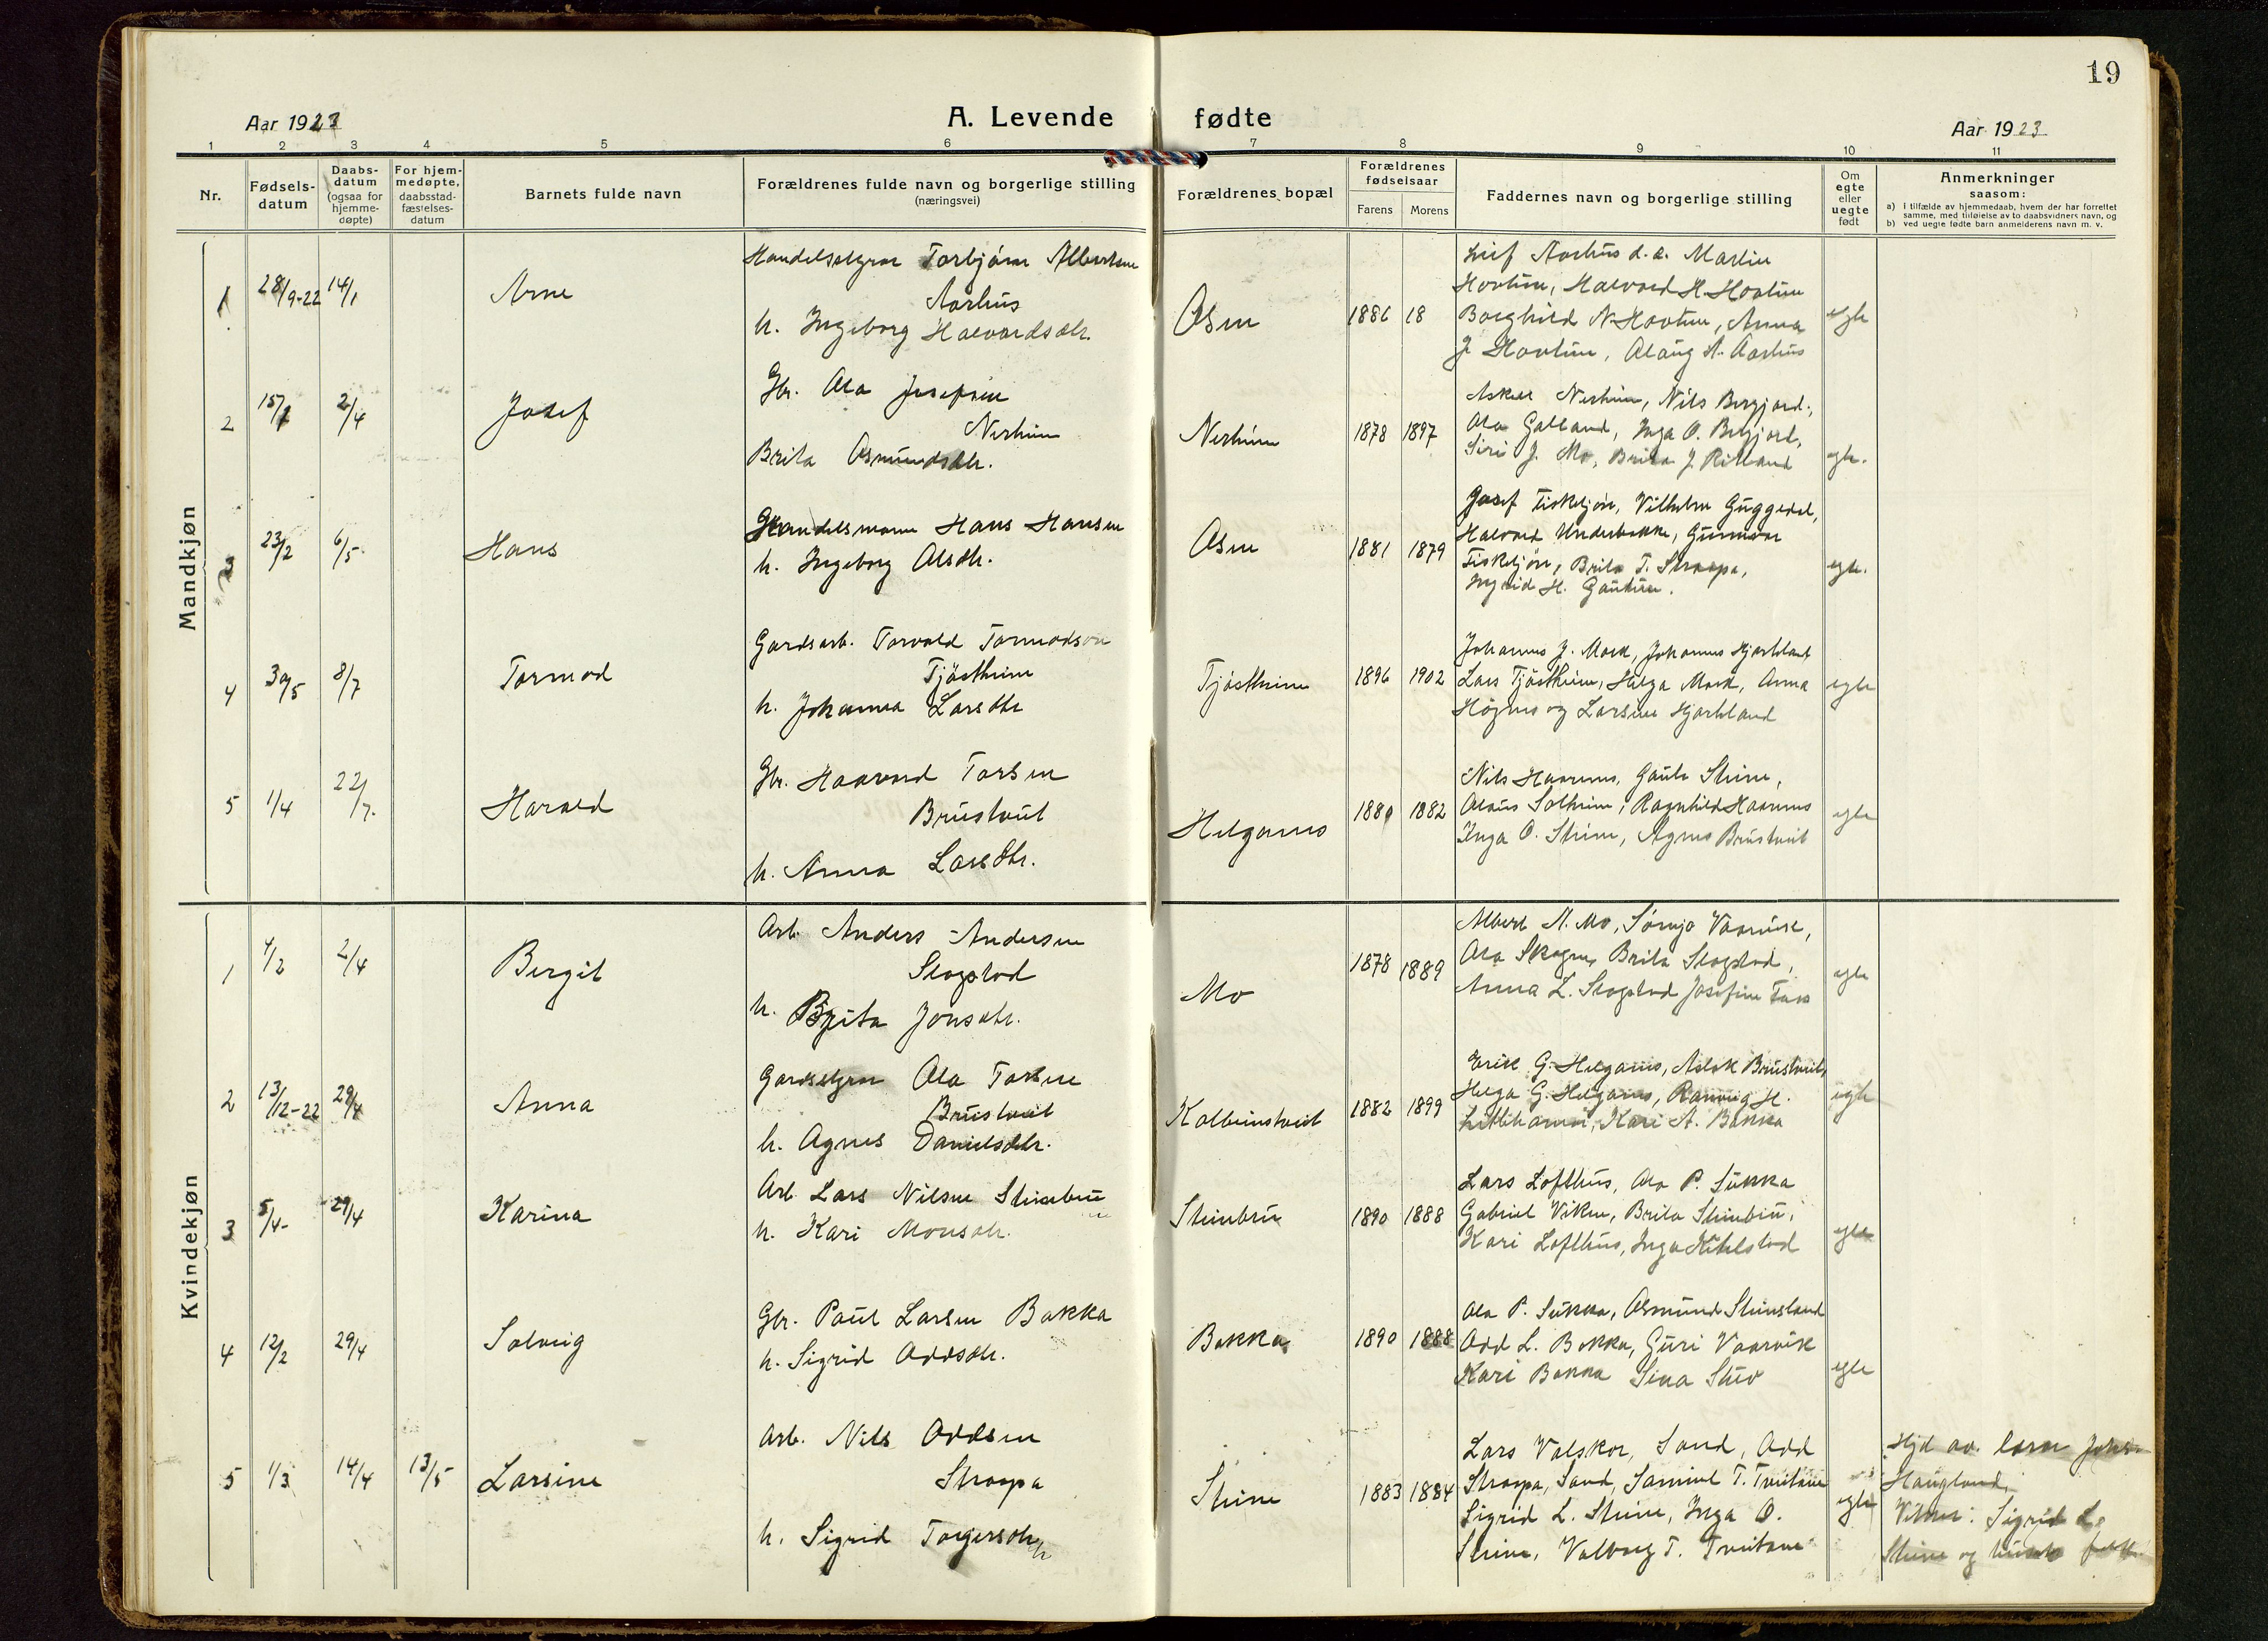 19
Aar 1923
A. Levende fødte
Aar 1923
1 2 3 4 5 6 7 8 9 10 11
Nr.
Fødsels-
datum
Daabs-
datum
(ogsaa for
hjemme-
døpte)
For hjem-
medøpte,
daabsstad-
fæstelses-
datum
Barnets fulde navn
Forældrenes fulde navn og borgerlige stilling
(næringsvei)
Forældrenes bopæl
Forældrenes
fødselsaar
Farens Morens
Faddernes navn og borgerlige stilling
Om
egte
eller
uegte
født
Anmerkninger
saasom:
a) i tilfælde av hjemmedaab, hvem der har forrettet
samme, med tilføielse av to daabsvidners navn, og
b) ved uegte fødte barn anmelderens navn m. v.
Mandkjøn
1 28/9-22 14/1 Arne
Torbjörn Albertsen
Aarhus
h. Ingeborg Halvardsdtr.
Osen 1886 18
Leif Aarhus d. e. Martin
Hovtun, Halvard H. Hovtun
Borghild N. Hovtun, Anna
J. Hovtun, Olaug A. Aarhus
egte
2 15/1 2/4 Josef
Gbr. Ola Josefsen
Nerheim
Brita Osmundsdtr.
Nerheim 1878 1897
Nerheim, Nils Bergjord,
Ola Galland, Inga O. Bergjord,
Siri J. Mo, Brita J. Ritland
egte.
3 23/2 6/5 Hans
Handelsmann Hans Hansen
h. Ingeborg Olsdtr.
Osen 1881 1879
Josef Fisketjön, Vilhelm Guggedal,
Halvard Underbakke, Gunnvor
Fisketjön, Brita T. Straapa,
Ingrid H. Gautun.
egte.
4 30/5 8/7 Tormod
Gardsarb. Torvald Tormodson
Tjöstheim
h. Johanna Larsdtr
Tjöstheim 1896 1902
Johannes J. Mork, Johannes Hjorteland
Lars Tjöstheim, Helga Mork, Anna
Högnes og Larsine Hjorteland
egte
5 1/4 22/7. Harald
Gbr. Haavard Torsen
Brustveit
h. Anna Larsdtr.
Helganes 1880 1882
Nils Haarenes, Gaute Steine,
Olaus Solheim, Ragnhild Haarenes
Inga O. Steine, Agnes Brustveit
egte
Kvindekjøn
1 4/2 2/4 Bergit
Arb. Anders Andersen
Skogstad
h. Brita Jonsdtr.
Mo 1878 1889
Albert A. Mo, Sönja Vaarvik,
Ola Skogen, Brita Skogstad,
Anna L. Skogstad Josefine
egte
2 13/12-22 29/4 Anna
Gardstyrer Ola Torsen
Brustveit
h. Agnes Danielsdtr.
Kolbeinstveit 1882 1899
Erik G. Helganes, Aslak Brustveit,
Helga G. Helganes, Ranveig H.
Litlehamar, Kari A. Bakka
egte
3 5/4- 29/4 Karina
Arb. Lars Nilsen Steinbru
h. Kari Monsdtr.
Steinbru 1890 1888
Lars Lofthus, Ola P. Sukka
Gabriel Viken, Brita Steinbru,
Kari Lofthus, Inga Kittelstad
egte
4 12/2 29/4 Solveig
Gbr. Paul Larsen Bakka
h. Sigrid Oddsdtr.
Bakka 1890 1888
Ola P. Sukka, Osmund Steinsland
Odd L. Bakka, Guri Vaarvik
Kari Bakka Sina
egte
5 1/3 14/4 13/5 Larsine
Arb. Nils Oddsen
Straapa
h. Sigrid Torgersdtr
Steine 1883 1884
Lars Valskor, Sand, Odd
Straapa, Sand, Samuel T. Tveitane
Sigrid L. Steine, Inga O.
Steine, Valborg T. Tveitane
egte
Hjd av. Johs.
Haugland.
Vitner: Sigrid L.
Steine og